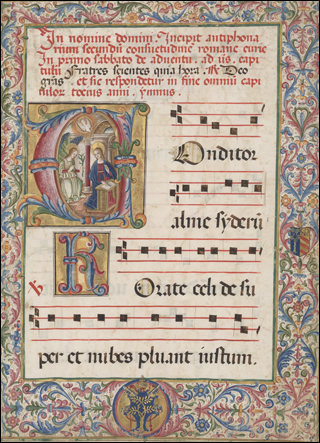 In nomine domini. Incipit antiphona
rium secundū consuetudinē romane curie
In primo sabbato de aduentu. ad vs. capi
tulū Fratres scientes quia hora. ℟ Deo
gr̄as. et sic respondetur in fine omniū capi
tulor tocius anni. Ymnus.
Conditor
alme syderū
℣ Rorate celi de su
per et nubes pluant iustum.